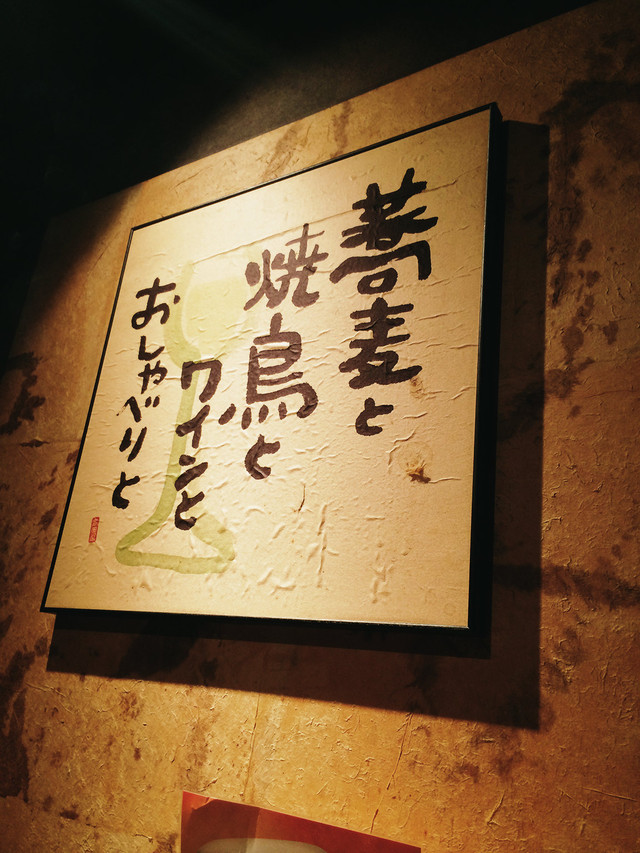 蕎麦と
焼鳥と
ワインと
おしゃべりと